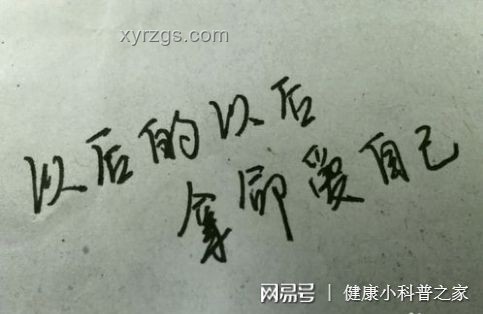 xyrzgs.com
以后的以后
爱自己
网易号 | 健康小科普之家